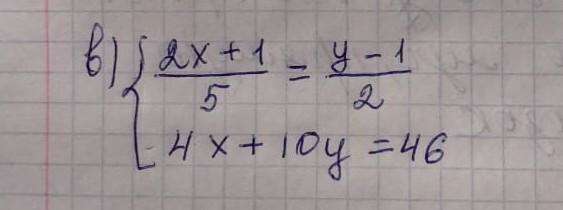 в) { (2x + 1)/5 = (y - 1)/2
4x + 10y = 46